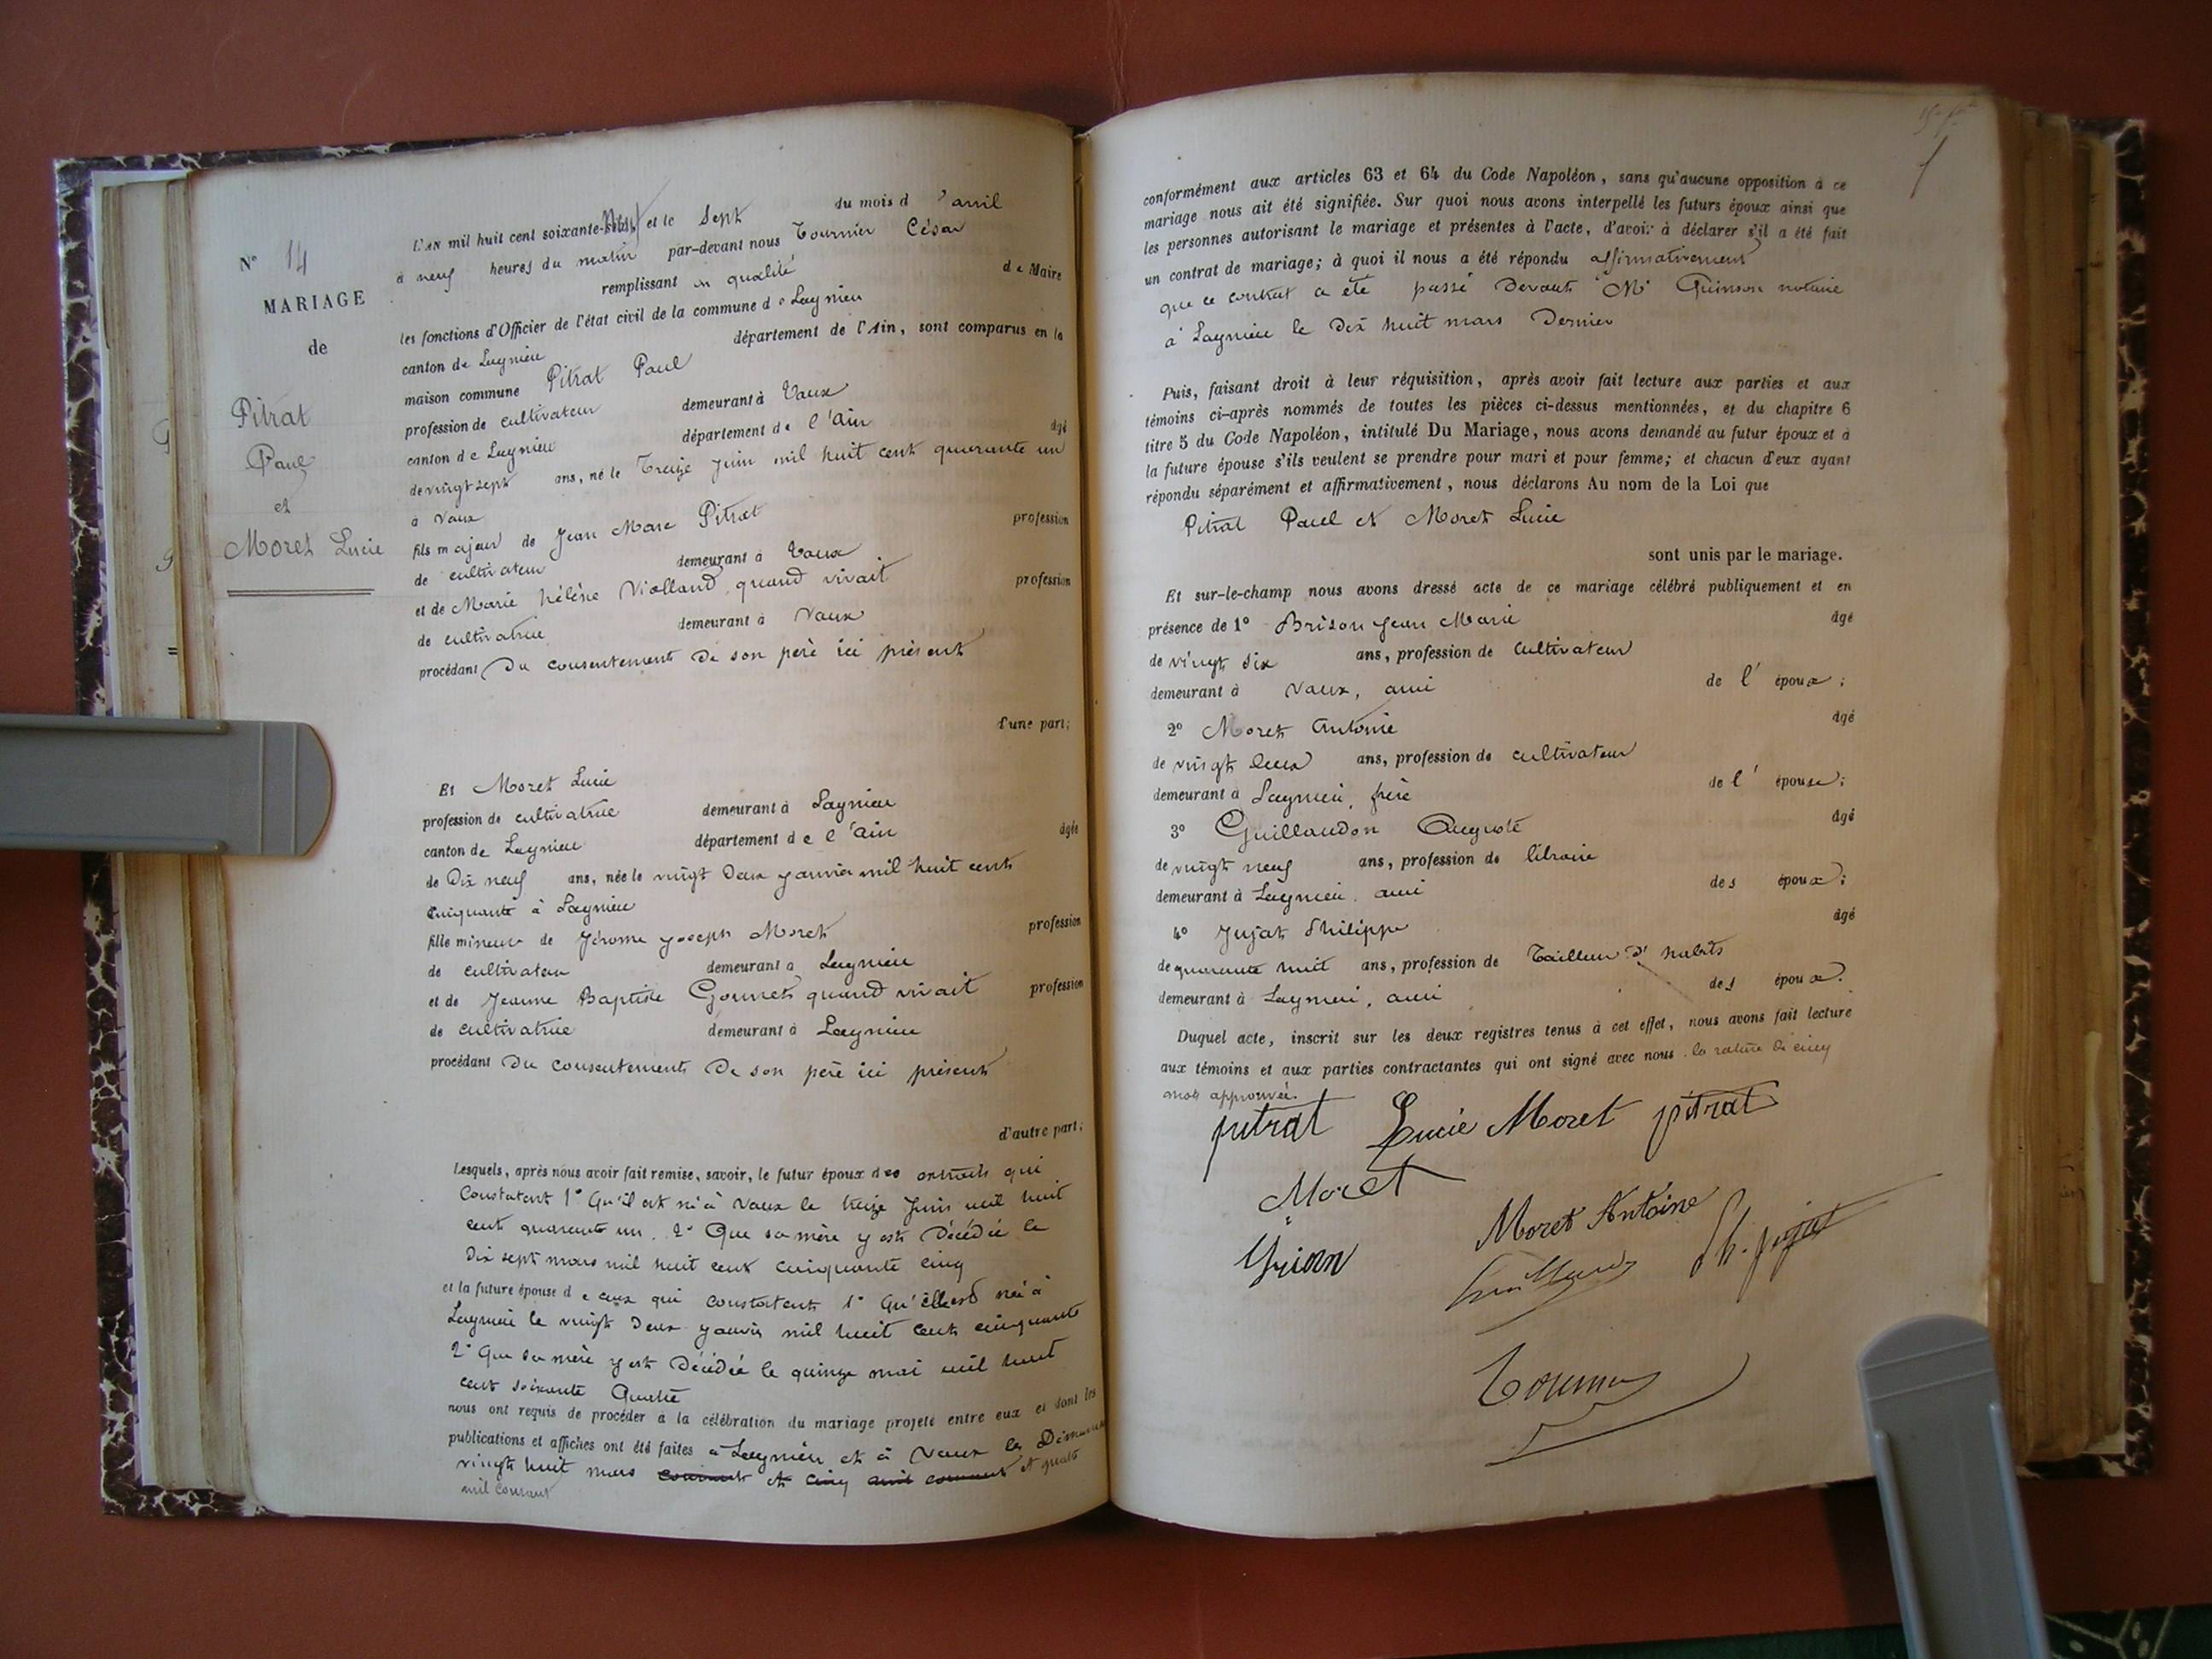 N° 14
MARIAGE
de
Pitrat
Paul
et
Moret Lucie
L'AN mil huit cent soixante-neuf et le Sept du mois d'avril
à neuf heures du matin par-devant nous Tournier César
remplissant en qualité de Maire
les fonctions d'Officier de l'état civil de la commune de Lagnieu
canton de Lagnieu département de l'Ain, sont comparus en la
maison commune Pitrat Paul
profession de cultivateur demeurant à Vaux
canton de Lagnieu département de l'Ain âgé
de vingt sept ans, né le Treize Juin mil huit cent quarante un
à Vaux
fils majeur de Jean Marc Pitrat profession
de cultivateur demeurant à Vaux
et de Marie hélène Violland quand vivait profession
de cultivatrice demeurant à Vaux
procédant Du consentement De son père ici présent
d'une part;
Et Moret Lucie
profession de cultivatrice demeurant à Lagnieu
canton de Lagnieu département de l'Ain âgée
de Dix neuf ans, née le vingt Deux janvier mil huit cent
Cinquante à Lagnieu
fille mineure de Jérome Joseph Moret profession
de cultivateur demeurant à Lagnieu
et de Jeanne Baptiste Gonnet quand vivait profession
de cultivatrice demeurant à Lagnieu
procédant Du consentement De son père ici présent
d'autre part;
Lesquels, après nous avoir fait remise, savoir, le futur époux des extraits qui
Constatent 1° Qu'il est né à Vaux le treize Juin mil huit
cent quarante un. 2° Que sa mère y est Décédée le
Dix sept mars mil huit cent cinquante cinq
et la future épouse de ceux qui constatent 1° Qu'elle est née à
Lagnieu le vingt Deux janvier mil huit cent cinquante
2° Que sa mère y est Décédée le quinze mai mil huit
cent soixante Quatre
nous ont requis de procéder à la célébration du mariage projeté entre eux et dont les
publications et affiches ont été faites à Lagnieu et à Vaux les Dimanches
vingt huit mars courant et cinq avril courant et quatre
avril courant
conformément aux articles 63 et 64 du Code Napoléon, sans qu'aucune opposition à ce
mariage nous ait été signifiée. Sur quoi nous avons interpellé les futurs époux ainsi que
les personnes autorisant le mariage et présentes à l'acte, d'avoir à déclarer s'il a été fait
un contrat de mariage; à quoi il nous a été répondu affirmativement
que ce contrat a été passé Devant Me Quinson notaire
à Lagnieu le Dix huit mars Dernier
Puis, faisant droit à leur réquisition, après avoir fait lecture aux parties et aux
témoins ci-après nommés de toutes les pièces ci-dessus mentionnées, et du chapitre 6
titre 5 du Code Napoléon, intitulé Du Mariage, nous avons demandé au futur époux et à
la future épouse s'ils veulent se prendre pour mari et pour femme; et chacun d'eux ayant
répondu séparément et affirmativement, nous déclarons Au nom de la Loi que
Pitrat Paul et Moret Lucie
sont unis par le mariage.
Et sur-le-champ nous avons dressé acte de ce mariage célébré publiquement et en
présence de 1° Brison Jean Marie âgé
de vingt six ans, profession de cultivateur
demeurant à Vaux, ami de l'époux;
2° Moret Antoine âgé
de vingt deux ans, profession de cultivateur
demeurant à Lagnieu, frère de l'épouse;
3° Guillaudon Auguste âgé
de vingt neuf ans, profession de libraire
demeurant à Lagnieu, ami des époux;
4° Jujat Philippe âgé
de quarante huit ans, profession de Tailleur D'habits
demeurant à Lagnieu, ami des époux.
Duquel acte, inscrit sur les deux registres tenus à cet effet, nous avons fait lecture
aux témoins et aux parties contractantes qui ont signé avec nous. la rature de cinq
mots approuvée.
pitrat Lucie Moret pitrat
Moret
Moret Antoine Ph. jujat
Tournier